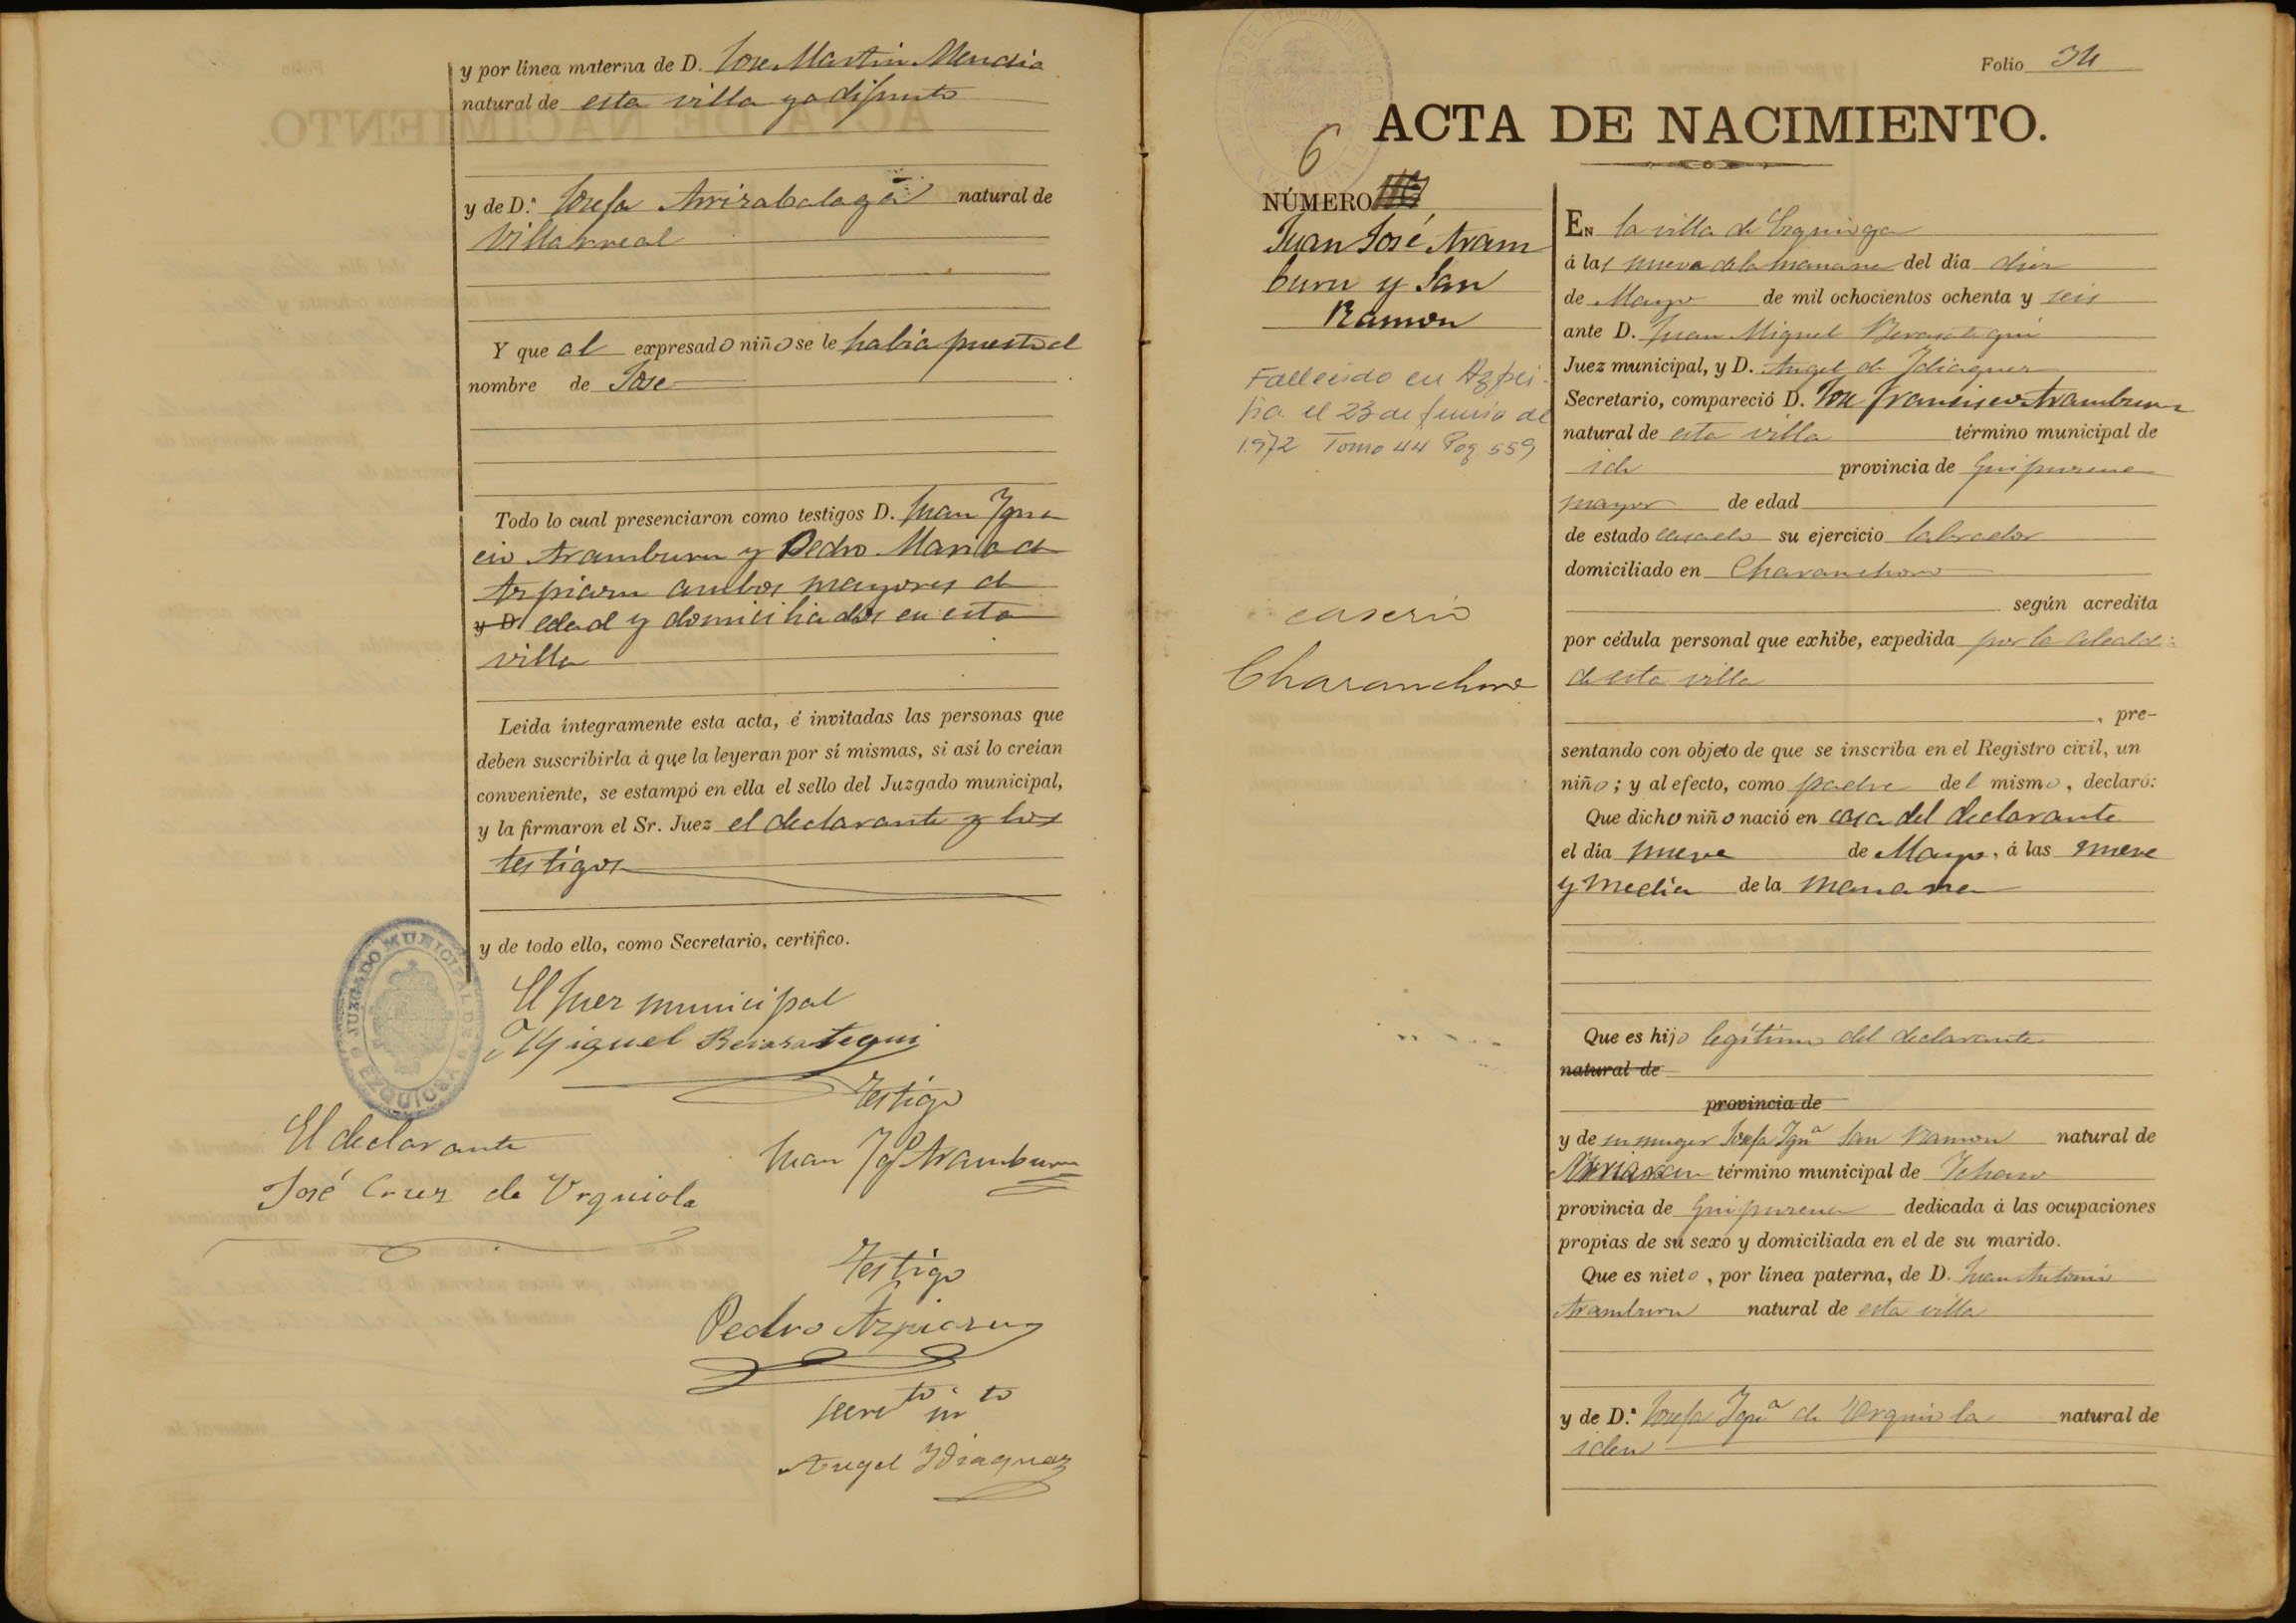 y por línea materna de D. Jose Martin Mendia
natural de esta villa ya difunto
y de D.ª Josefa Arrizabalaga natural de
Villarreal
Y que al expresado niño se le había puesto el
nombre de Jose
Todo lo cual presenciaron como testigos D. Juan Igna
cio Aramburu y Pedro Maria de
Azpiazu ambos mayores de
y D. edad y domiciliados en esta
villa
Leida íntegramente esta acta, é invitadas las personas que
deben suscribirla á que la leyeran por sí mismas, si así lo creían
conveniente, se estampó en ella el sello del Juzgado municipal,
y la firmaron el Sr. Juez el declarante y los
testigos
y de todo ello, como Secretario, certifico.
JUZGADO MUNICIPAL DE EZQUIOGA
El Juez municipal
Miguel Berasategui
Testigo
Juan Ig.º Aramburu
El declarante
José Cruz de Urquiola
Testigo
Pedro Azpiazu
Secret.º in.to
Angel Idiaquez
Folio 34
ACTA DE NACIMIENTO.
6
NÚMERO
Juan José Aram
buru y San
Ramon
Fallecido en Azpei-
tia el 23 de Junio de
1972 Tomo 44 Pag 559
caserio
Charanchone
En la villa de Ezquioga
á las nueve de la manana del día diez
de Mayo de mil ochocientos ochenta y seis
ante D. Juan Miguel Berasategui
Juez municipal, y D. Angel de Idiaquez
Secretario, compareció D. Jose Francisco Aramburu
natural de esta villa término municipal de
id. provincia de Guipuzcua
mayor de edad
de estado casado su ejercicio labrador
domiciliado en Charanchone
según acredita
por cédula personal que exhibe, expedida por la Alcaldi
de esta villa
, pre-
sentando con objeto de que se inscriba en el Registro civil, un
niño; y al efecto, como padre del mismo, declaró:
Que dicho niño nació en casa del declarante
el día nueve de Mayo, á las nueve
y media de la manana
Que es hijo legítimo del declarante
natural de
provincia de
y de su muger Josefa Ign.ª San Ramon natural de
término municipal de Ichaso
provincia de Guipuzcua dedicada á las ocupaciones
propias de su sexo y domiciliada en el de su marido.
Que es nieto, por línea paterna, de D. Juan Antonio
Aramburu natural de esta villa
y de D.ª Josefa Ign.ª de Urquiola natural de
idem